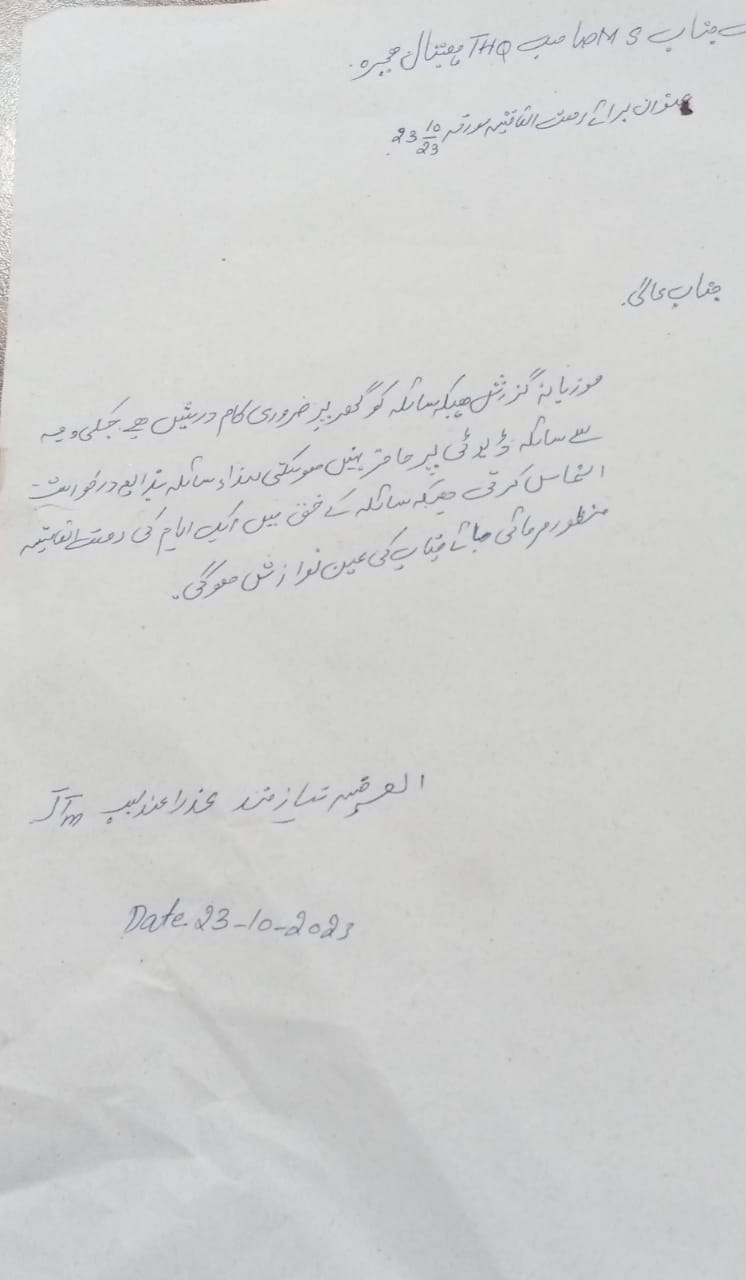 جناب MS صاحب THQ ہسپتال حجیرہ.
عنوان برائے رخصت اتفاقیہ مورخہ 23 10/23
جناب عالی.
موزبانہ گزارش ہیکہ سائلہ کو گھر پر ضروری کام درپیش ہے جسکی وجہ
سے سائلہ ڈیوٹی پر حاضر نہیں ہوسکتی لہذاء سائلہ بذرایعہ درخواست
التماس کرتی ہیکہ سائلہ کے حق میں ایک ایام کی رخصت اتفاقیہ
منظور فرمائی جائے جناب کی عین نوازش ہوگی.
العرضیہ نیازمند عذرا عندلیب
Date 23-10-2023